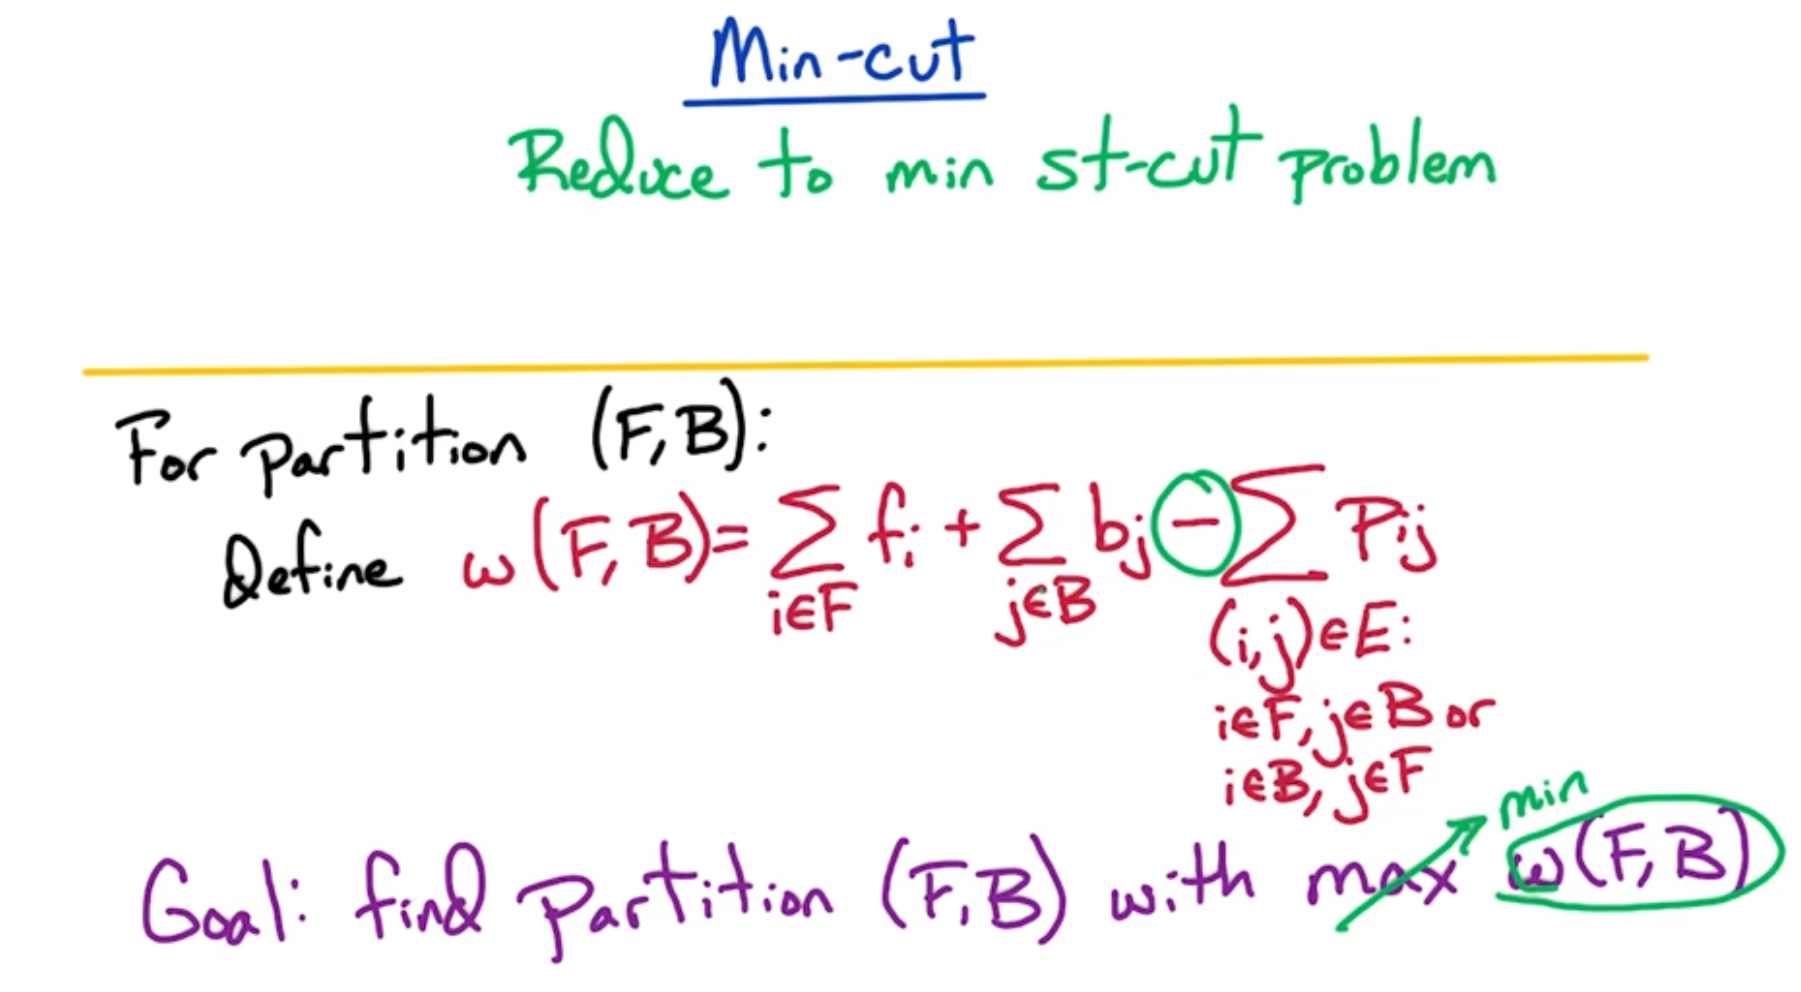 Min-cut
Reduce to min st-cut problem
For partition (F,B):
Define w(F,B)= ∑ fi + ∑ bj − ∑ Pij
i∈F j∈B (i,j)∈E:
i∈F, j∈B or
i∈B, j∈F
min
Goal: find partition (F,B) with max w(F,B)